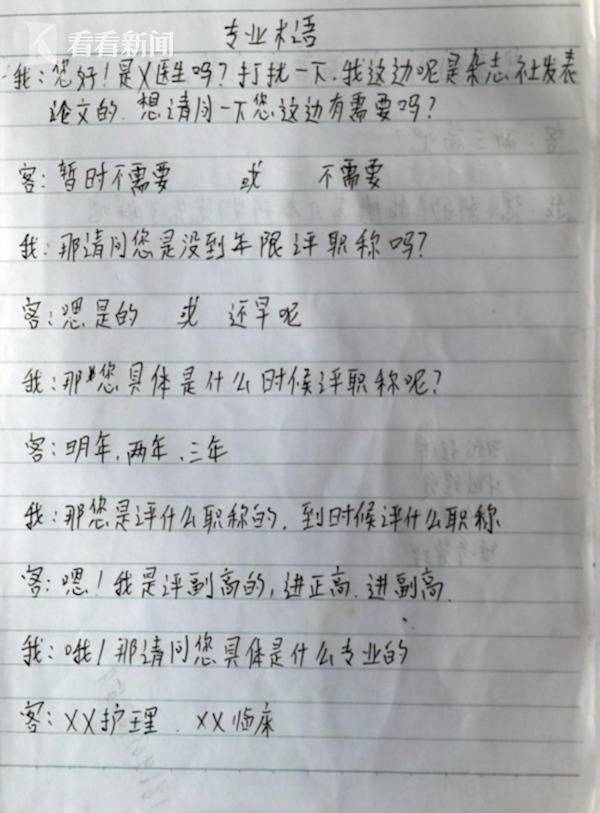 看看新闻
专业术语
我:您好!是X医生吗?打扰一下.我这边呢是杂志社发表
论文的.想请问一下您这边有需要吗?
客:暂时不需要 或 不需要
我:那请问您是没到年限评职称吗?
客:嗯是的 或 还早呢
我:那您具体是什么时候评职称呢?
客:明年、两年、三年
我:那您是评什么职称的,到时候评什么职称
客:嗯!我是评副高的,进正高、进副高.
我:哦!那请问您具体是什么专业的
客:XX护理、XX临床